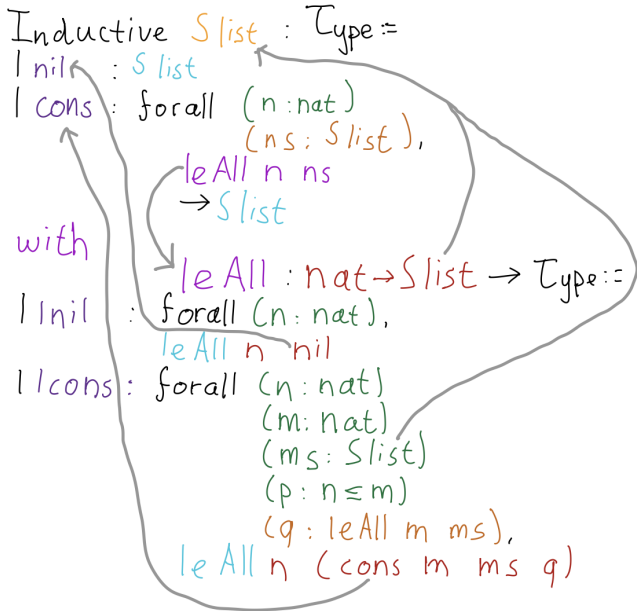 Inductive Slist : Type :=
| nil : Slist
| cons : forall (n : nat)
(ns : Slist),
leAll n ns
→ Slist
with
leAll : nat → Slist → Type :=
| lnil : forall (n : nat),
leAll n nil
| lcons : forall (n : nat)
(m : nat)
(ms : Slist)
(p : n ≤ m)
(q : leAll m ms),
leAll n (cons m ms q)